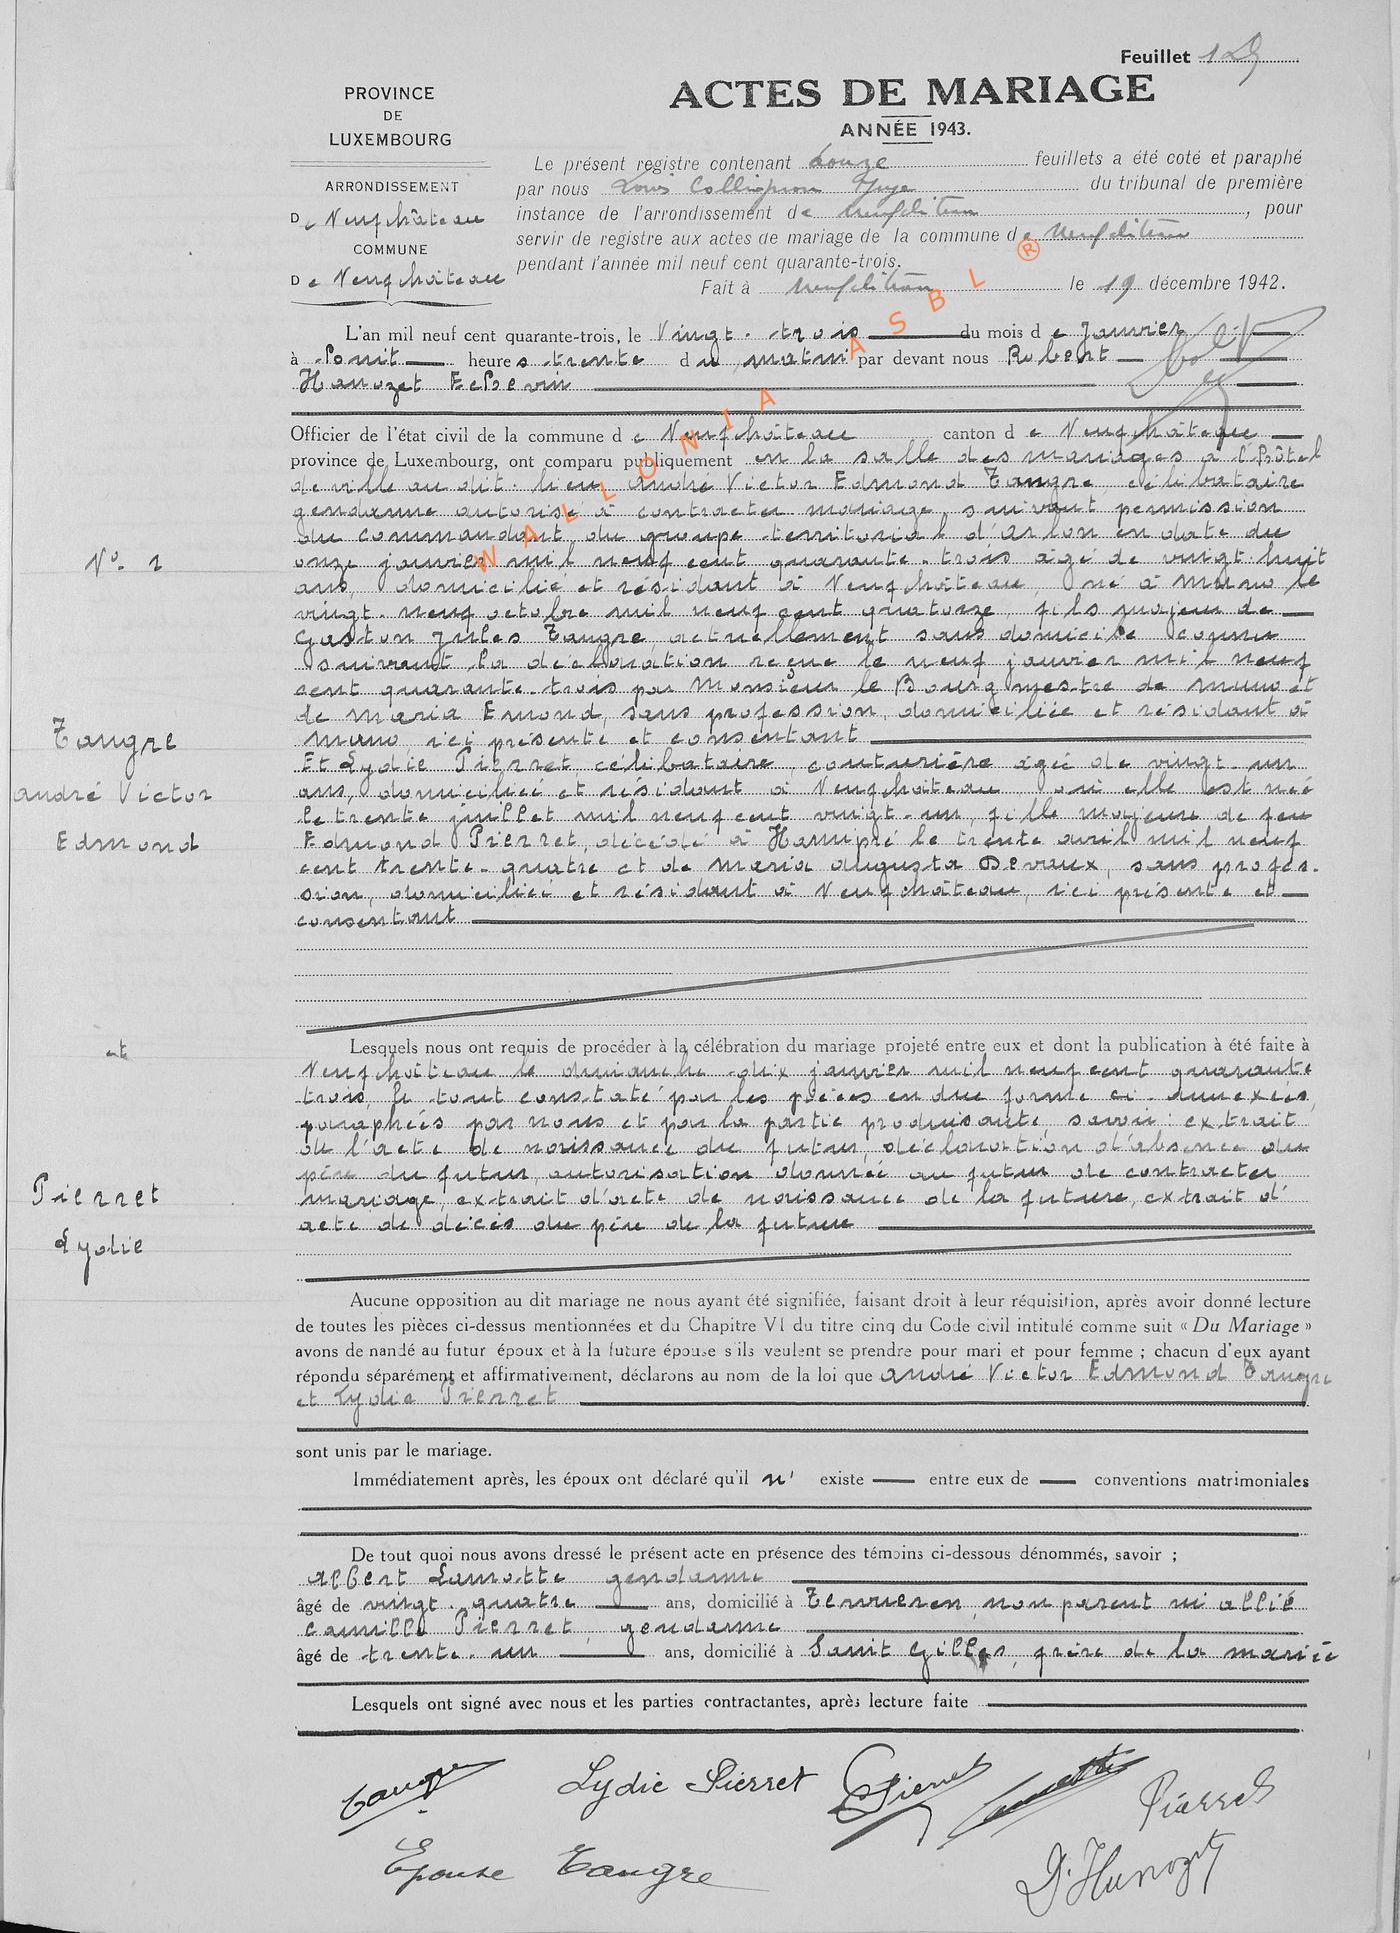 Feuillet 1
PROVINCE
DE
LUXEMBOURG
ARRONDISSEMENT
De Neufchâteau
COMMUNE
De Neufchâteau
ACTES DE MARIAGE
ANNÉE 1943.
Le présent registre contenant douze feuillets a été coté et paraphé
par nous Louis Collignon Juge du tribunal de première
instance de l'arrondissement de Neufchâteau, pour
servir de registre aux actes de mariage de la commune de Neufchâteau
pendant l'année mil neuf cent quarante-trois.
Fait à Neufchâteau le 19 décembre 1942.
WALLONIA ASBL ®
L'an mil neuf cent quarante-trois, le Vingt-trois du mois de Janvier
à huit heures trente du matin par devant nous Robert
Hanozet Echevin
Officier de l'état civil de la commune de Neufchâteau canton de Neufchâteau
province de Luxembourg, ont comparu publiquement en la salle des mariages à l'hôtel
de ville au dit-lieu André Victor Edmond Tangre, célibataire
gendarme autorisé à contracter mariage, suivant permission
du commandant du groupe territorial d'Arlon en date du
onze janvier mil neuf cent quarante-trois âgé de vingt-huit
ans, domicilié et résidant à Neufchâteau, né à Muno le
vingt-neuf octobre mil neuf cent quatorze, fils majeur de
Gaston Jules Tangre, actuellement sans domicile connu
suivant la déclaration reçue le neuf janvier mil neuf
cent quarante-trois par Monsieur le Bourgmestre de Muno et
de Maria Emond, sans profession, domiciliée et résidant à
Muno, ici présente et consentant
Et Lydie Pierret célibataire, couturière âgée de vingt-un
ans, domiciliée et résidant à Neufchâteau où elle est née
le trente juillet mil neuf cent vingt-un, fille majeure de feu
Edmond Pierret, décédé à Hamipré le trente avril mil neuf
cent trente-quatre et de Maria Augusta Devaux, sans profes-
sion, domiciliée et résidant à Neufchâteau, ici présente et
consentant
N° 1
Tangre
André Victor
Edmond
et
Pierret
Lydie
Lesquels nous ont requis de procéder à la célébration du mariage projeté entre eux et dont la publication à été faite à
Neufchâteau le dimanche dix janvier mil neuf cent quarante
trois, le tout constaté par les pièces en due forme ci-annexées,
paraphées par nous et par la partie produisante, savoir: extrait
de l'acte de naissance du futur, déclaration d'absence du
père du futur, autorisation donnée au futur de contracter
mariage, extrait d'acte de naissance de la future, extrait d'
acte de décès du père de la future
Aucune opposition au dit mariage ne nous ayant été signifiée, faisant droit à leur réquisition, après avoir donné lecture
de toutes les pièces ci-dessus mentionnées et du Chapitre VI du titre cinq du Code civil intitulé comme suit « Du Mariage »
avons de nandé au futur époux et à la future épouse s'ils veulent se prendre pour mari et pour femme ; chacun d'eux ayant
répondu séparément et affirmativement, déclarons au nom de la loi que André Victor Edmond Tangre
et Lydie Pierret
sont unis par le mariage.
Immédiatement après, les époux ont déclaré qu'il n' existe entre eux de conventions matrimoniales
De tout quoi nous avons dressé le présent acte en présence des témoins ci-dessous dénommés, savoir ;
Albert Lamotte gendarme
âgé de vingt-quatre ans, domicilié à Tervueren, non parent ni allié
Camille Pierret, gendarme
âgé de trente-un ans, domicilié à Saint Gilles, frère de la mariée
Lesquels ont signé avec nous et les parties contractantes, après lecture faite
Tangre Lydie Pierret C Pierret Lamotte Pierret
Epouse Tangre R. Hanozet